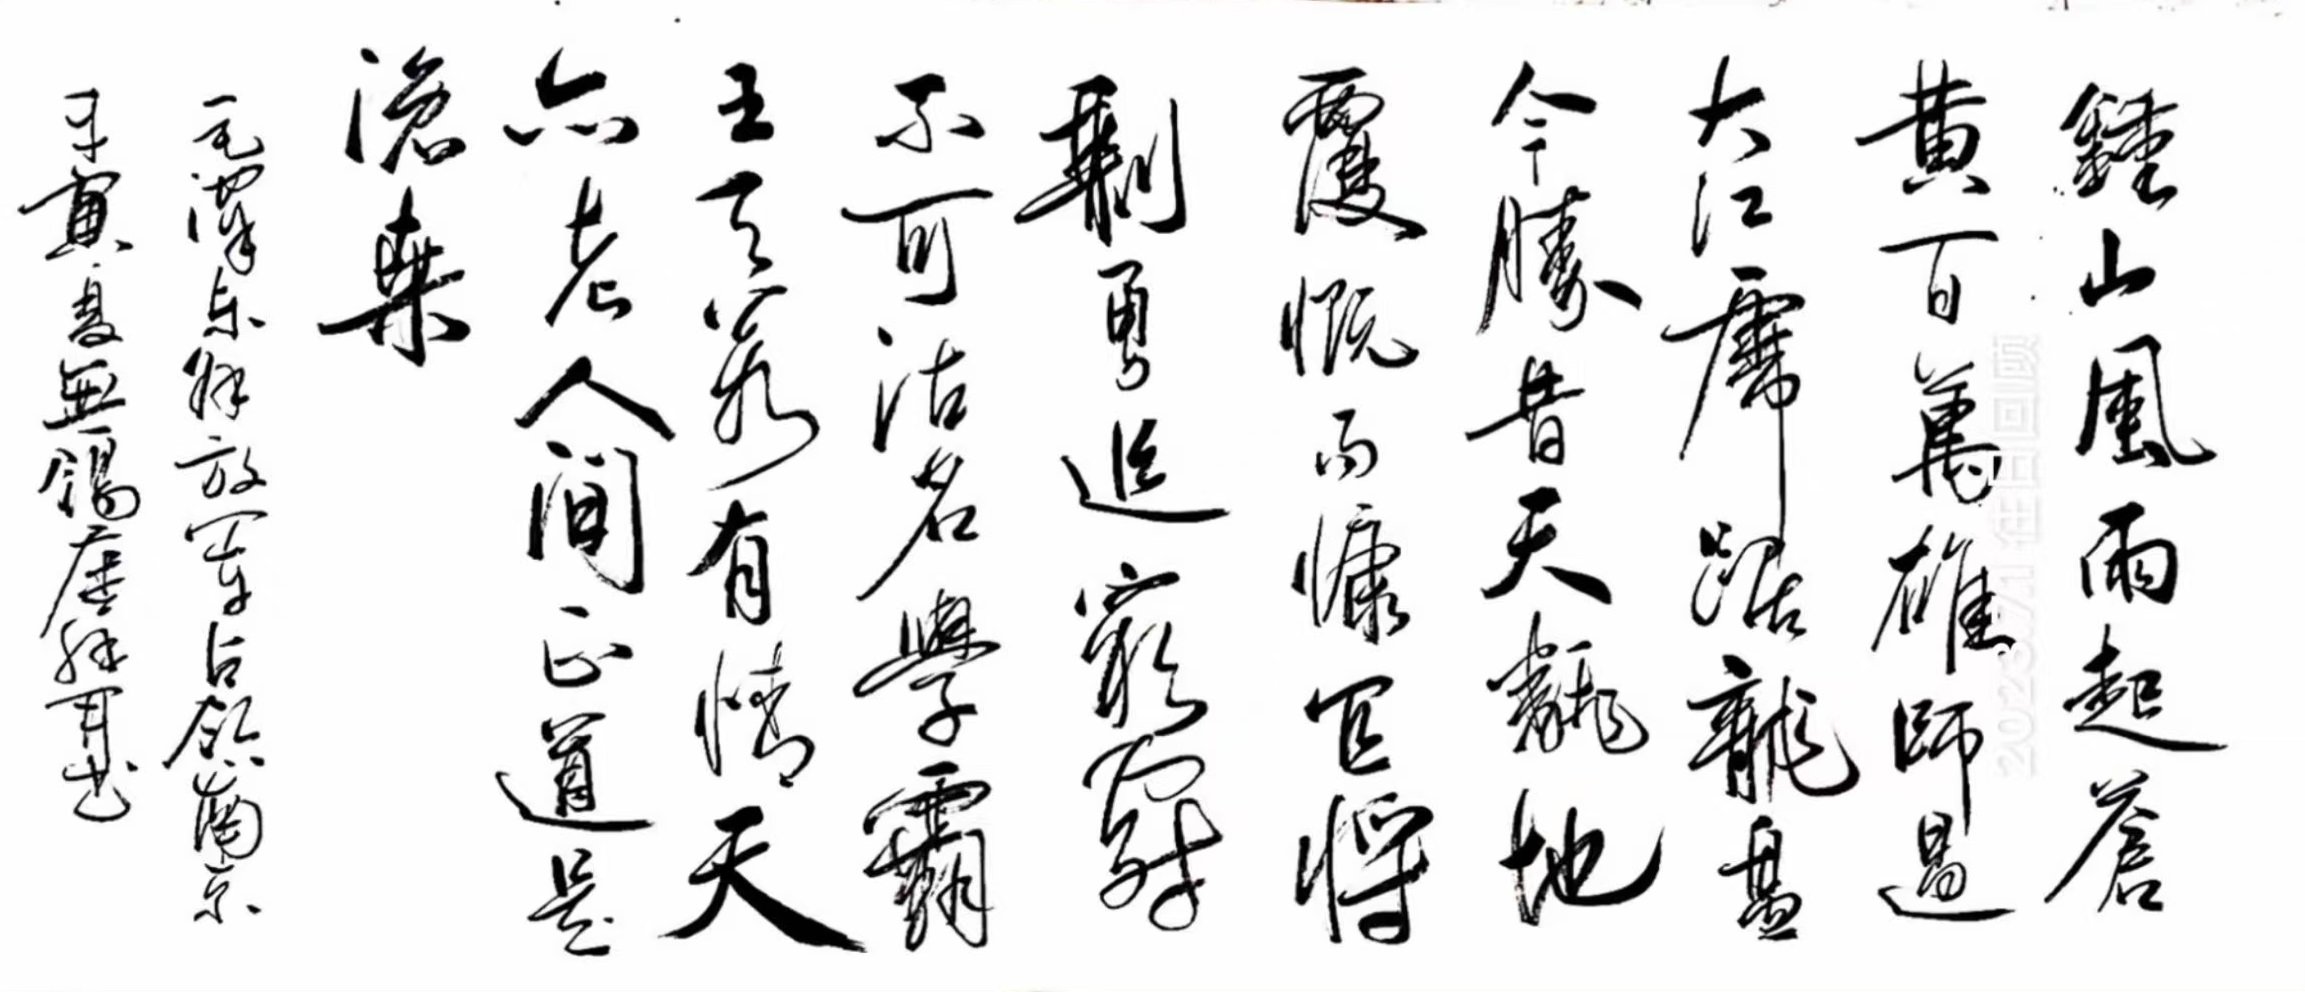 鍾山風雨起蒼
黃百萬雄師過
大江虎踞龍盤
今勝昔天翻地
覆慨而慷宜將
剩勇追窮寇
不可沽名學霸
王天若有情天
亦老人間正道是
滄桑
毛澤東解放軍占領南京
壬寅夏無錫唐書
2023.7.1 往日回顾